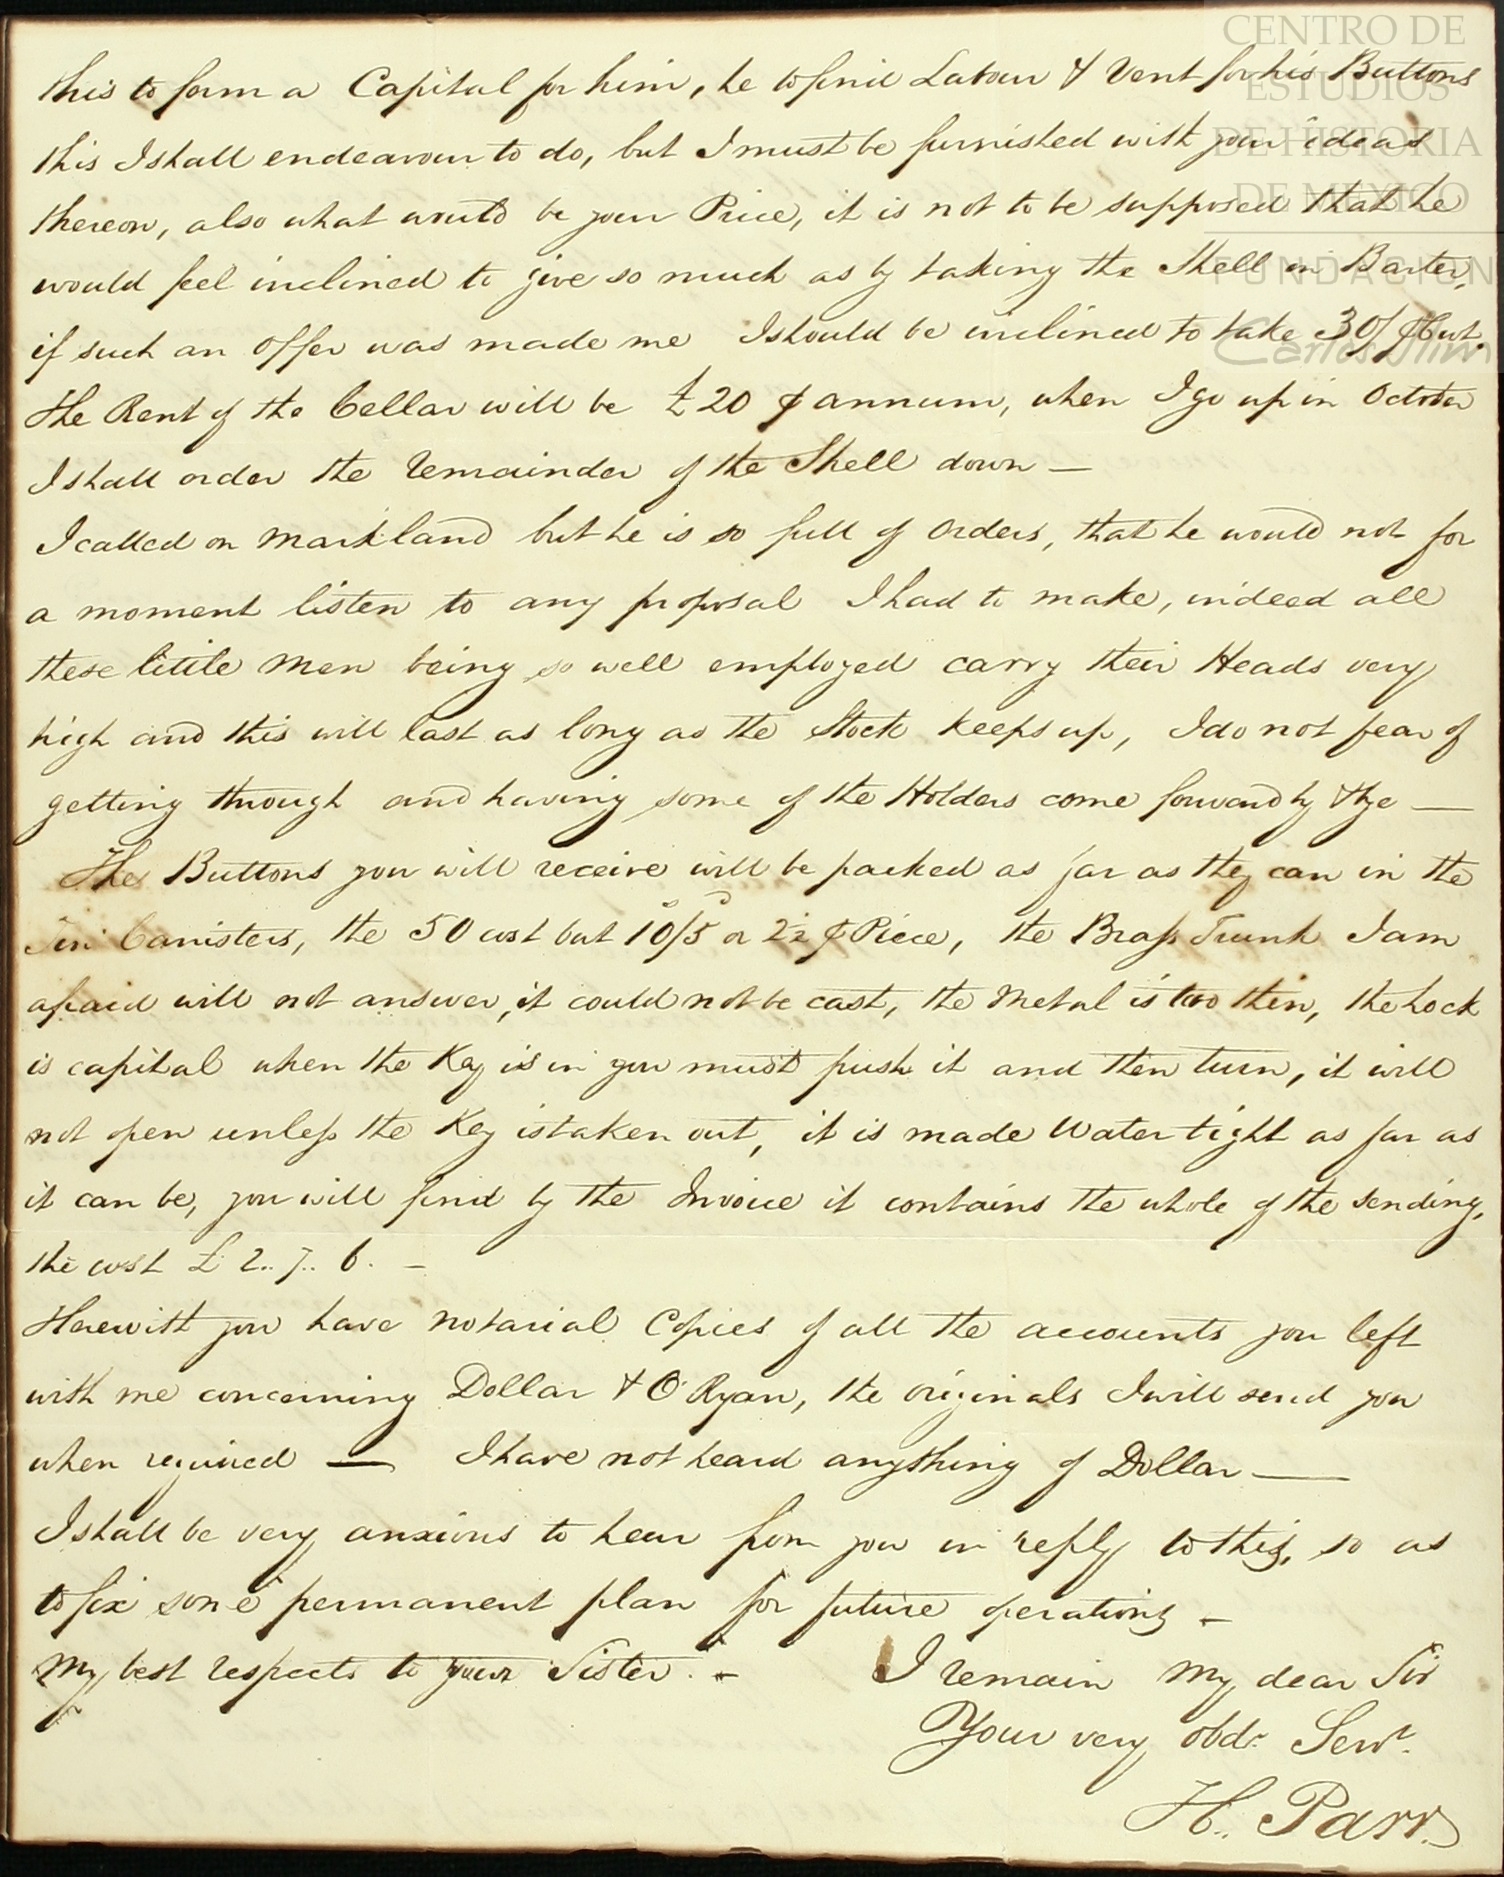 this to form a Capital for him, he to find Labour & Vent for his Buttons
this I shall endeavour to do, but I must be furnished with your ideas
thereon, also what would be your Price, it is not to be supposed that he
would feel inclined to give so much as by taking the Shell in Barter,
if such an offer was made me I should be inclined to take 30/ ⅌ Cwt.
The Rent of the Cellar will be £20 ⅌ annum, when I go up in October
I shall order the remainder of the Shell down —
I called on Markland but he is so full of Orders, that he would not for
a moment listen to any proposal I had to make, indeed all
these little Men being so well employed carry their Heads very
high and this will last as long as the Stock keeps up, I do not fear of
getting through and having some of the Holders come forward by & bye —
The Buttons you will receive will be packed as far as they can in the
Tin Canisters, the 50 cost but 10/5 or 2½ ⅌ Piece, the Brass Trunk I am
afraid will not answer, it could not be cast, the Metal is too thin, the Lock
is capital when the Key is in you must push it and then turn, it will
not open unless the Key is taken out, it is made Water tight as far as
it can be, you will find by the Invoice it contains the whole of the sending,
the cost £ 2.. 7.. 6. —
Herewith you have notarial Copies of all the accounts you left
with me concerning Dollar & O'Ryan, the originals I will send you
when required — I have not heard anything of Dollar —
I shall be very anxious to hear from you in reply to this, so as
to fix some permanent plan for future operations —
My best respects to your Sister. — I remain My dear Sir
Your very obdt. Servt.
H. Parr
CENTRO DE
ESTUDIOS
DE HISTORIA
DE MEXICO
FUNDACION
Carlos Slim